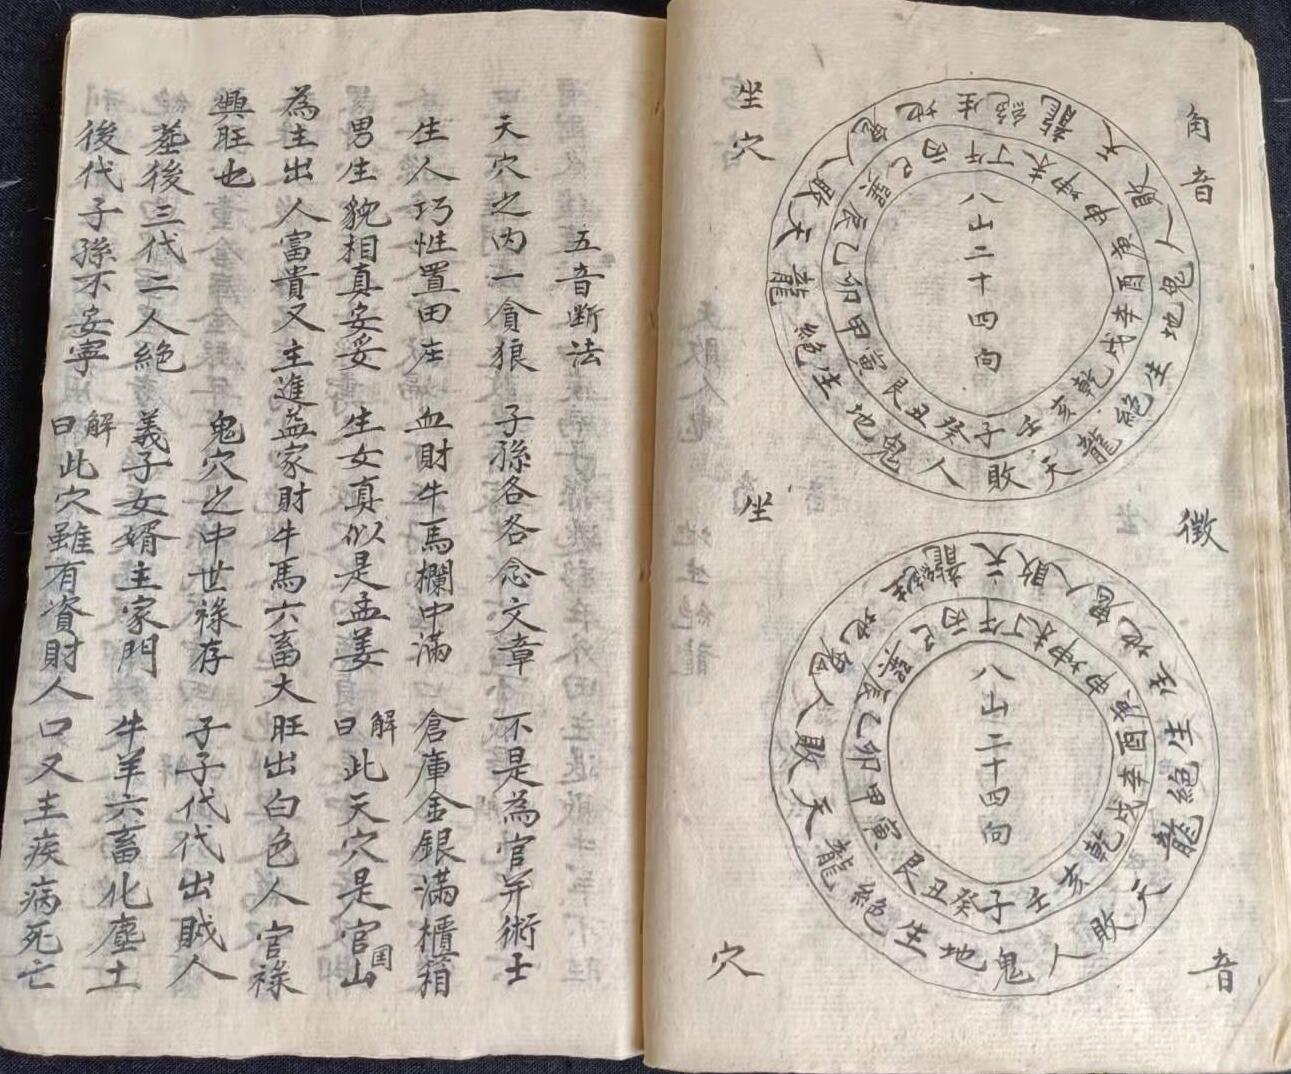 角音
坐穴
八山二十四向
午丁未坤申庚酉辛戌乾亥壬子癸丑艮寅甲卯乙辰巽巳丙
地生絕龍天敗人鬼地生絕龍天敗人鬼地生絕龍天敗人鬼
徵音
坐穴
八山二十四向
午丁未坤申庚酉辛戌乾亥壬子癸丑艮寅甲卯乙辰巽巳丙
天敗人鬼地生生絕龍天敗人鬼地生絕龍天敗人鬼地生絕龍
五音断法
天穴之内一貪狼 子孫各各念文章 不是為官并術士
生人巧性置田庄 血財牛馬欄中滿 倉庫金銀滿櫃箱
男生貌相真妥妥 生女真似是孟姜 解曰此天穴是官国山
為主出人富貴又主進益家財牛馬六畜大旺出白色人官祿
興旺也 鬼穴之中世祿存 子子代代出賊人
塟後三代二人絕 義子女婿主家門 牛羊六畜化塵土
後代子孫不安寧 解曰此穴雖有資財人口又主疾病死亡